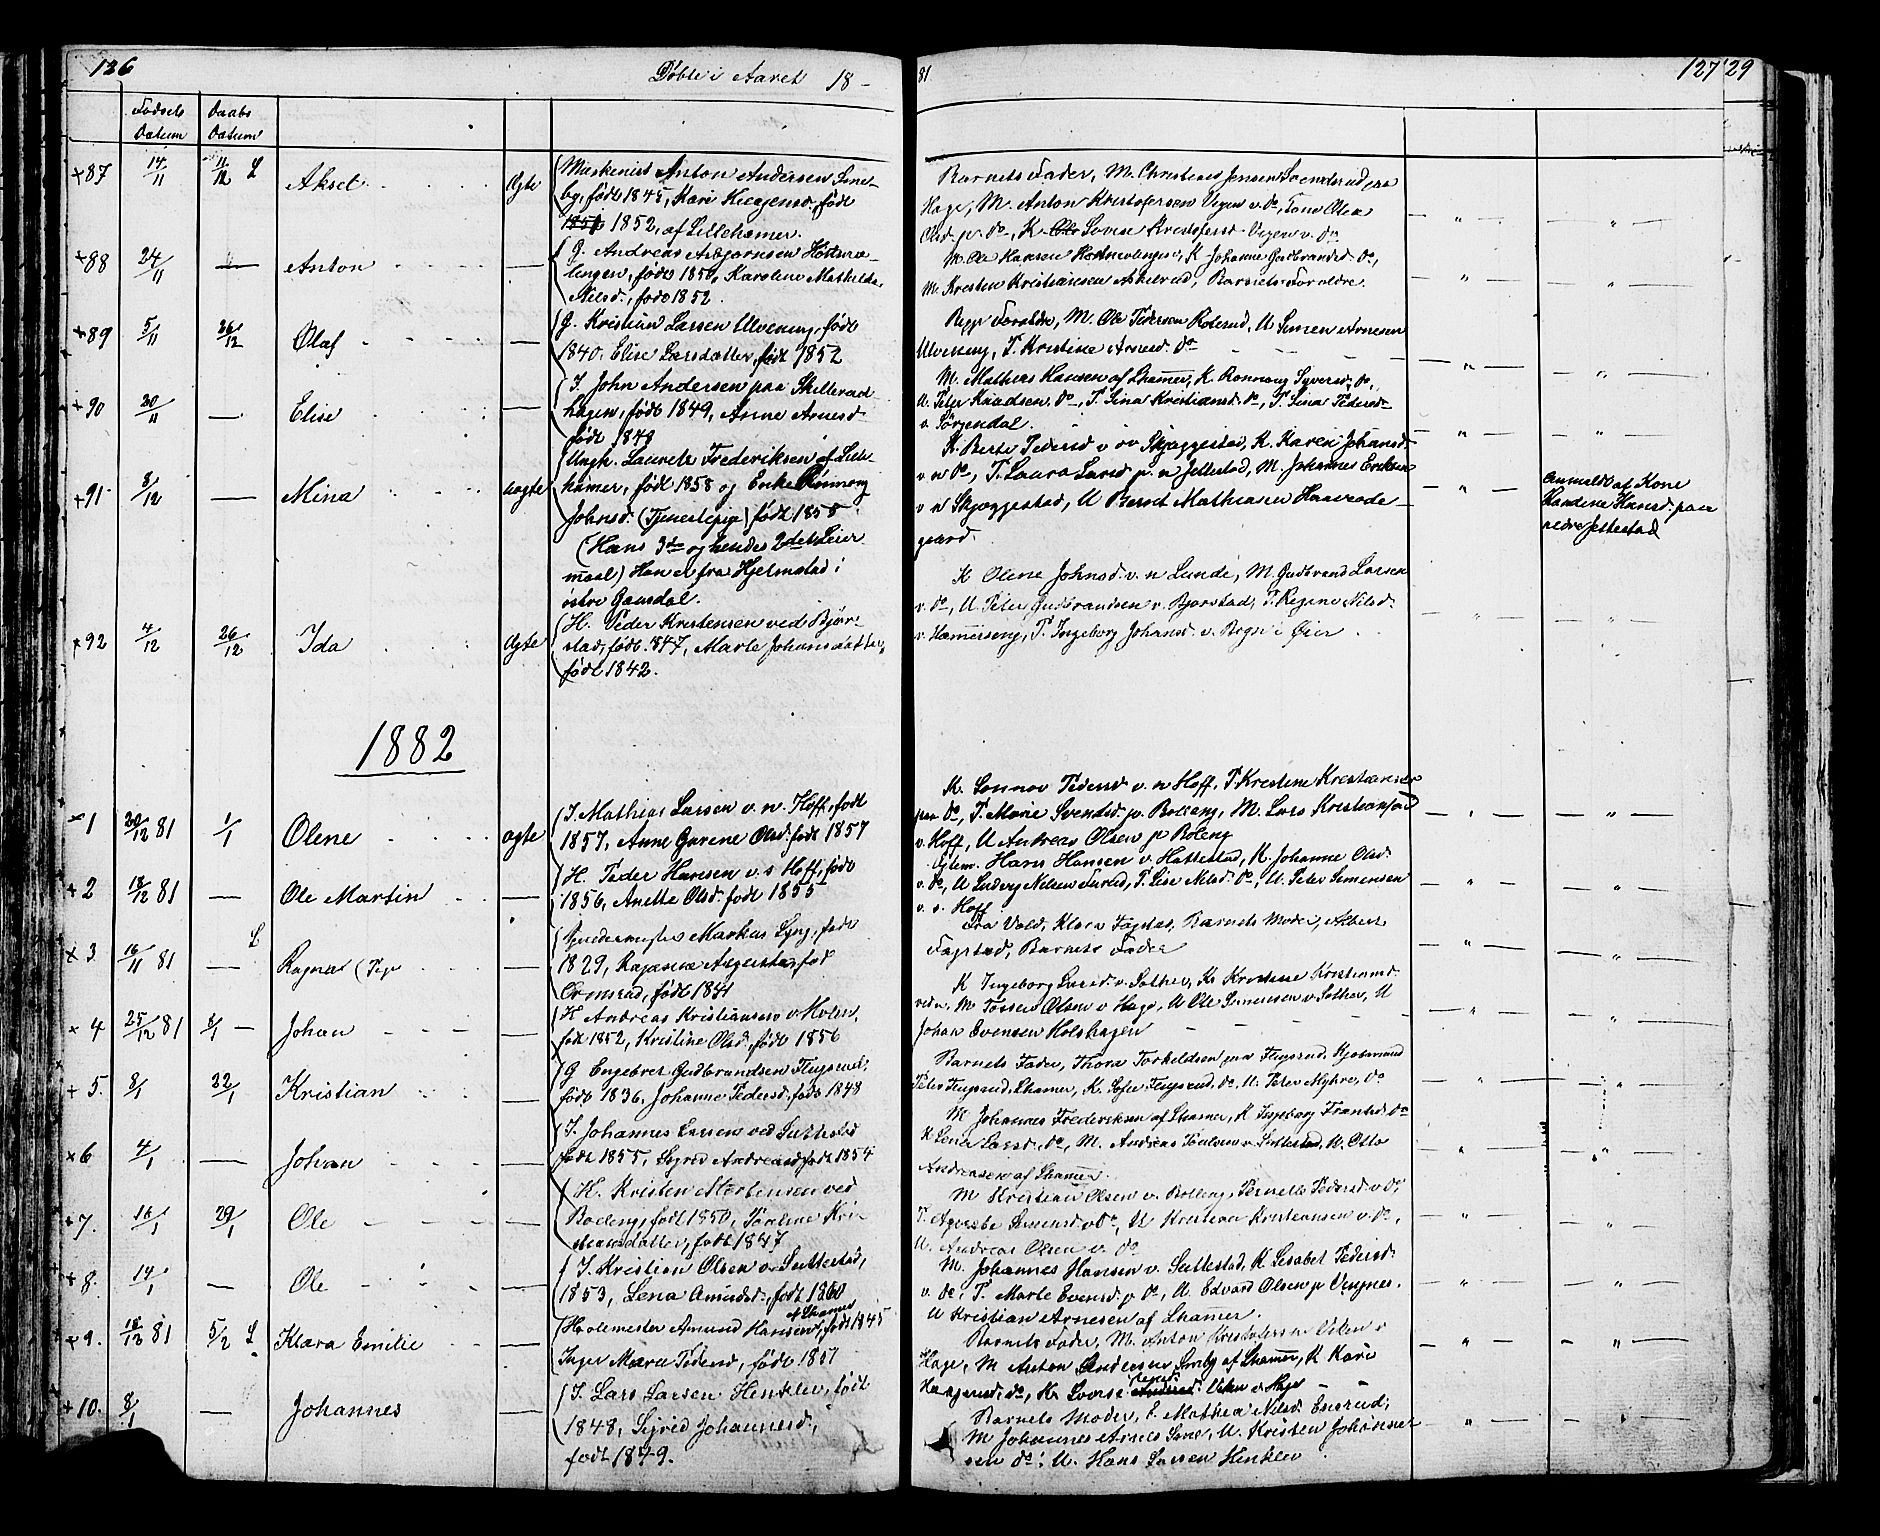 126
Døbte i Aaret 18-
81
127 29
Fødsels Datum
Daabs Datum
+87 14/11 11/12 L Aksel Ægte Maskinist Anton Andersen
by, født 1845, Kari født
1852, af Lillehamer.
Barnets Fader, M. Christian Jensen
Hage, M. Anton Kristofersen Vigen v. do,
Olsd p. do, K. Lovise Kristofersd Vigen v. do
+88 24/11 — Anton — G. Andreas Asbjørnsen
født 1850, Karoline Mathilde
Nilsd., født 1852.
M. Ole Hansen K Johanne Gudbrandsd do,
M. Kresten Kristiansen Barnets Forældre.
+89 5/11 26/12 Olaf — G. Kristian Larsen Ulveneng, født
1840, Elise Larsdatter, født 1852
Begge Forældre, M. Ole Pedersen U Simen Arnesen
Ulveneng, P. Kristine Arnesd. do
+90 30/11 — Elise — I. John Andersen paa Skillerud
hagen, født 1849, Anne Arnesd
født 1848
M. Mathias Hansen af Lhamer, K. Ronnaug Syversd, do,
U. Peter Knudsen do, P. Lina Kristiansd. do, P. Lina Pedersd
v. Sørgendal.
+91 8/12 — Mina Uægte Ungk. Laurits Frederiksen af Lille-
hamer, født 1858 og Enke Rønnaug
Johnsd. (Tjenestepige) født 1855
(Hans 3die og hendes 2det Leier
maal) Han er fra Hjelmstad i
østre Gausdal.
K. Berte Pedersd v øv Skjaggestad, K. Karen Johansd
v n do, P. Laura Larsd p. n Jeltestad, M. Johannes Eriksen
v n Skjaggestad, U Bernt Mathiasen
gaard.
Anmeldt af Kone
Hansd. paa
nedre Jeltestad
+92 4/12 26/12 Ida Ægte H. Peder Kristensen ved Bjør-
stad, født 1847, Marte Johansdatter,
født 1842.
K Olene Johnsd. v. n Lunde, M. Gudbrand Larsen
v. do, U Peter Gudbrandsen v. Bjørstad, P. Regine Nilsd.
v. Hammerseng, P. Ingeborg Johansd. v. i Øier
1882
+1 30/12 81 1/1 Olene Ægte I. Mathias Larsen v. n. Hoff, født
1857, Anne Gurine Olsd. født 1857
K. Pedersd v. n Hoff, P. Kristine
paa do, P. Marie Svendsd. p. Bolleng, M. Lars Kristiansen
v. Hoff, U Andreas Olsen p Boleng
+2 18/12 81 — Ole Martin — H. Peder Hansen v. s Hoff, født
1856, Anette Olsd. født 1855
Hans Hansen v. Hattestad, K. Johanne Olsd.
v. do, U Ludvig Nelsen P. Lise Nelsd. do, U. Peter Simensen
v. s. Hoff
+3 16/11 81 — L Ragna — Markus Lyng, født
1829, født
født 1841
Fru Vold, Klara Fagstad, Barnets Moder, Albert
Fagstad, Barnets Fader
+4 25/12 81 8/1 Johan — H Andreas Kristiansen v Holen,
født 1852, Kristine Olsd., født 1856
K Ingeborg Larsd. v. K. Kristiansd.
M Olsen v Hage, U Ole Simensen v. U
Johan Evensen Holshagen
+5. 8/1 22/1 Kristian — G Engebret Gudbrandsen Flugsrud,
født 1836, Johanne Pedersd, født 1848
Barnets Fader, Thora Torkeldsen paa Flugsrud,
Peter Flugsrud, Lhamer, K. Sofie Flugsrud, do, U. Peter Myhre, do
+6 4/1 — Johan — I. Johannes Larsen ved Suttestad
født 1855, Sigrid Andreasd, født 1854
M Johannes Frederiksen af Lhamer, K Ingeborg Frantsd. do
K Lena Larsd. do, M. Andreas v. Suttestad, U. Otto
Andreasen af Lhamer.
+7. 16/1 29/1 Ole — H. Kristen Mortensen ved
Boleng, født 1850, Pauline Kri-
stiansdatter, født 1847
M Kristian Olsen v. Bolleng, Pernelle Pedersd v do,
P. v do, U Kristian Kristiansen v. do,
U. Andreas Olsen v. do
+8. 14/1 — Ole — I. Kristian Olsen v Suttestad,
1853, Lena Amundsd, født 1860
M. Johannes Hansen v. Suttestad, K Lisabet Pedersd.
v. do, P. Marte Evensd. p do, U. Edvard Olsen p
U Kristian Arnesen af Lhamer.
+9. 81 5/2 L Klara Emilie — Skolemester Amund Hansen af Lhamer, født 1845
Inger Marie Pedersd, født 1857
Barnets Fader, M. Anton Kristofersen Viken v
Hage, M Anton Andersen af Lhamer, K Kari
do, K. Lovise Viken v Hage
+10. 8/1 — Johannes — I. Lars Larsen Henklev, født
1848, Sigrid Johannesd.,
født 1849.
Barnets Moder, P. Mathea Nilsd.
M Johannes Arnes U. Kristen Johannes
sen do, U. Hans Larsen Henklev